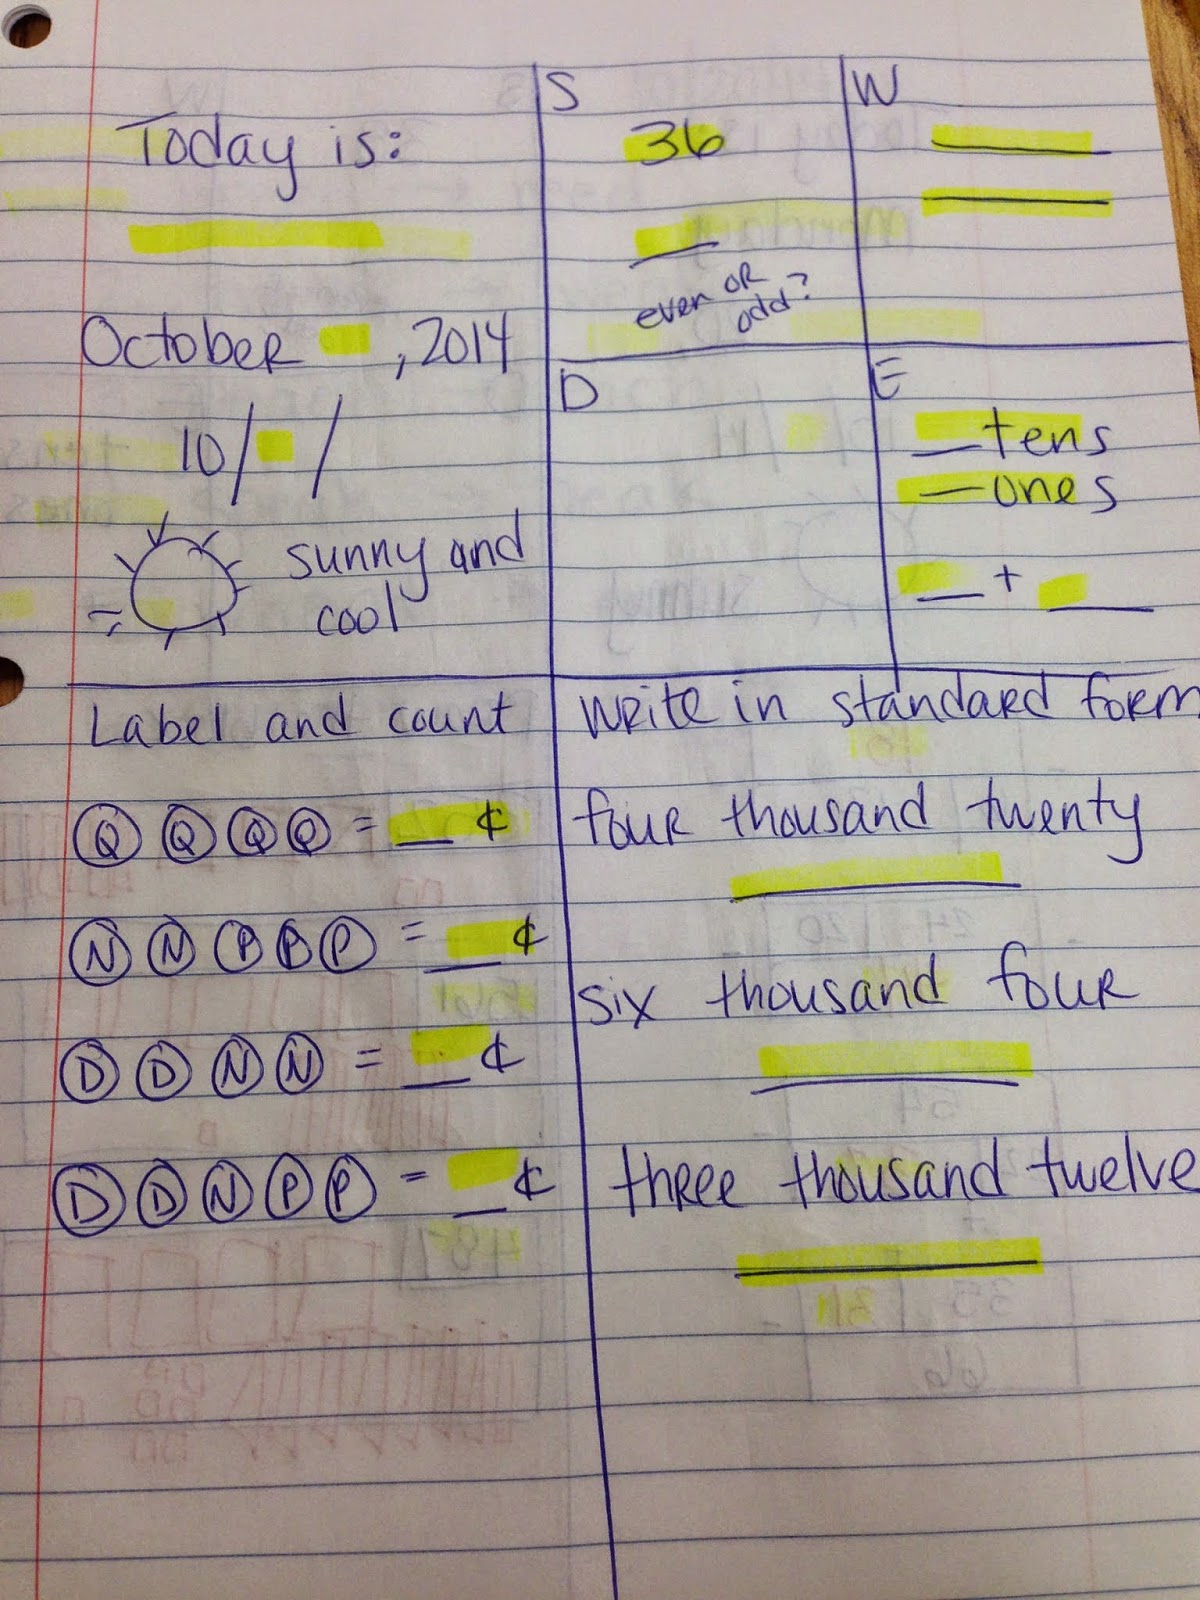 Today is:
October , 2014
10/ /
sunny and
cool
S
36
even OR
odd?
W
D
E
_ tens
_ ones
_ + _
Label and count
Q Q Q Q = _ ¢
N N P P P = _ ¢
D D N N = _ ¢
D D N P P = _ ¢
Write in standard form
four thousand twenty
six thousand four
three thousand twelve